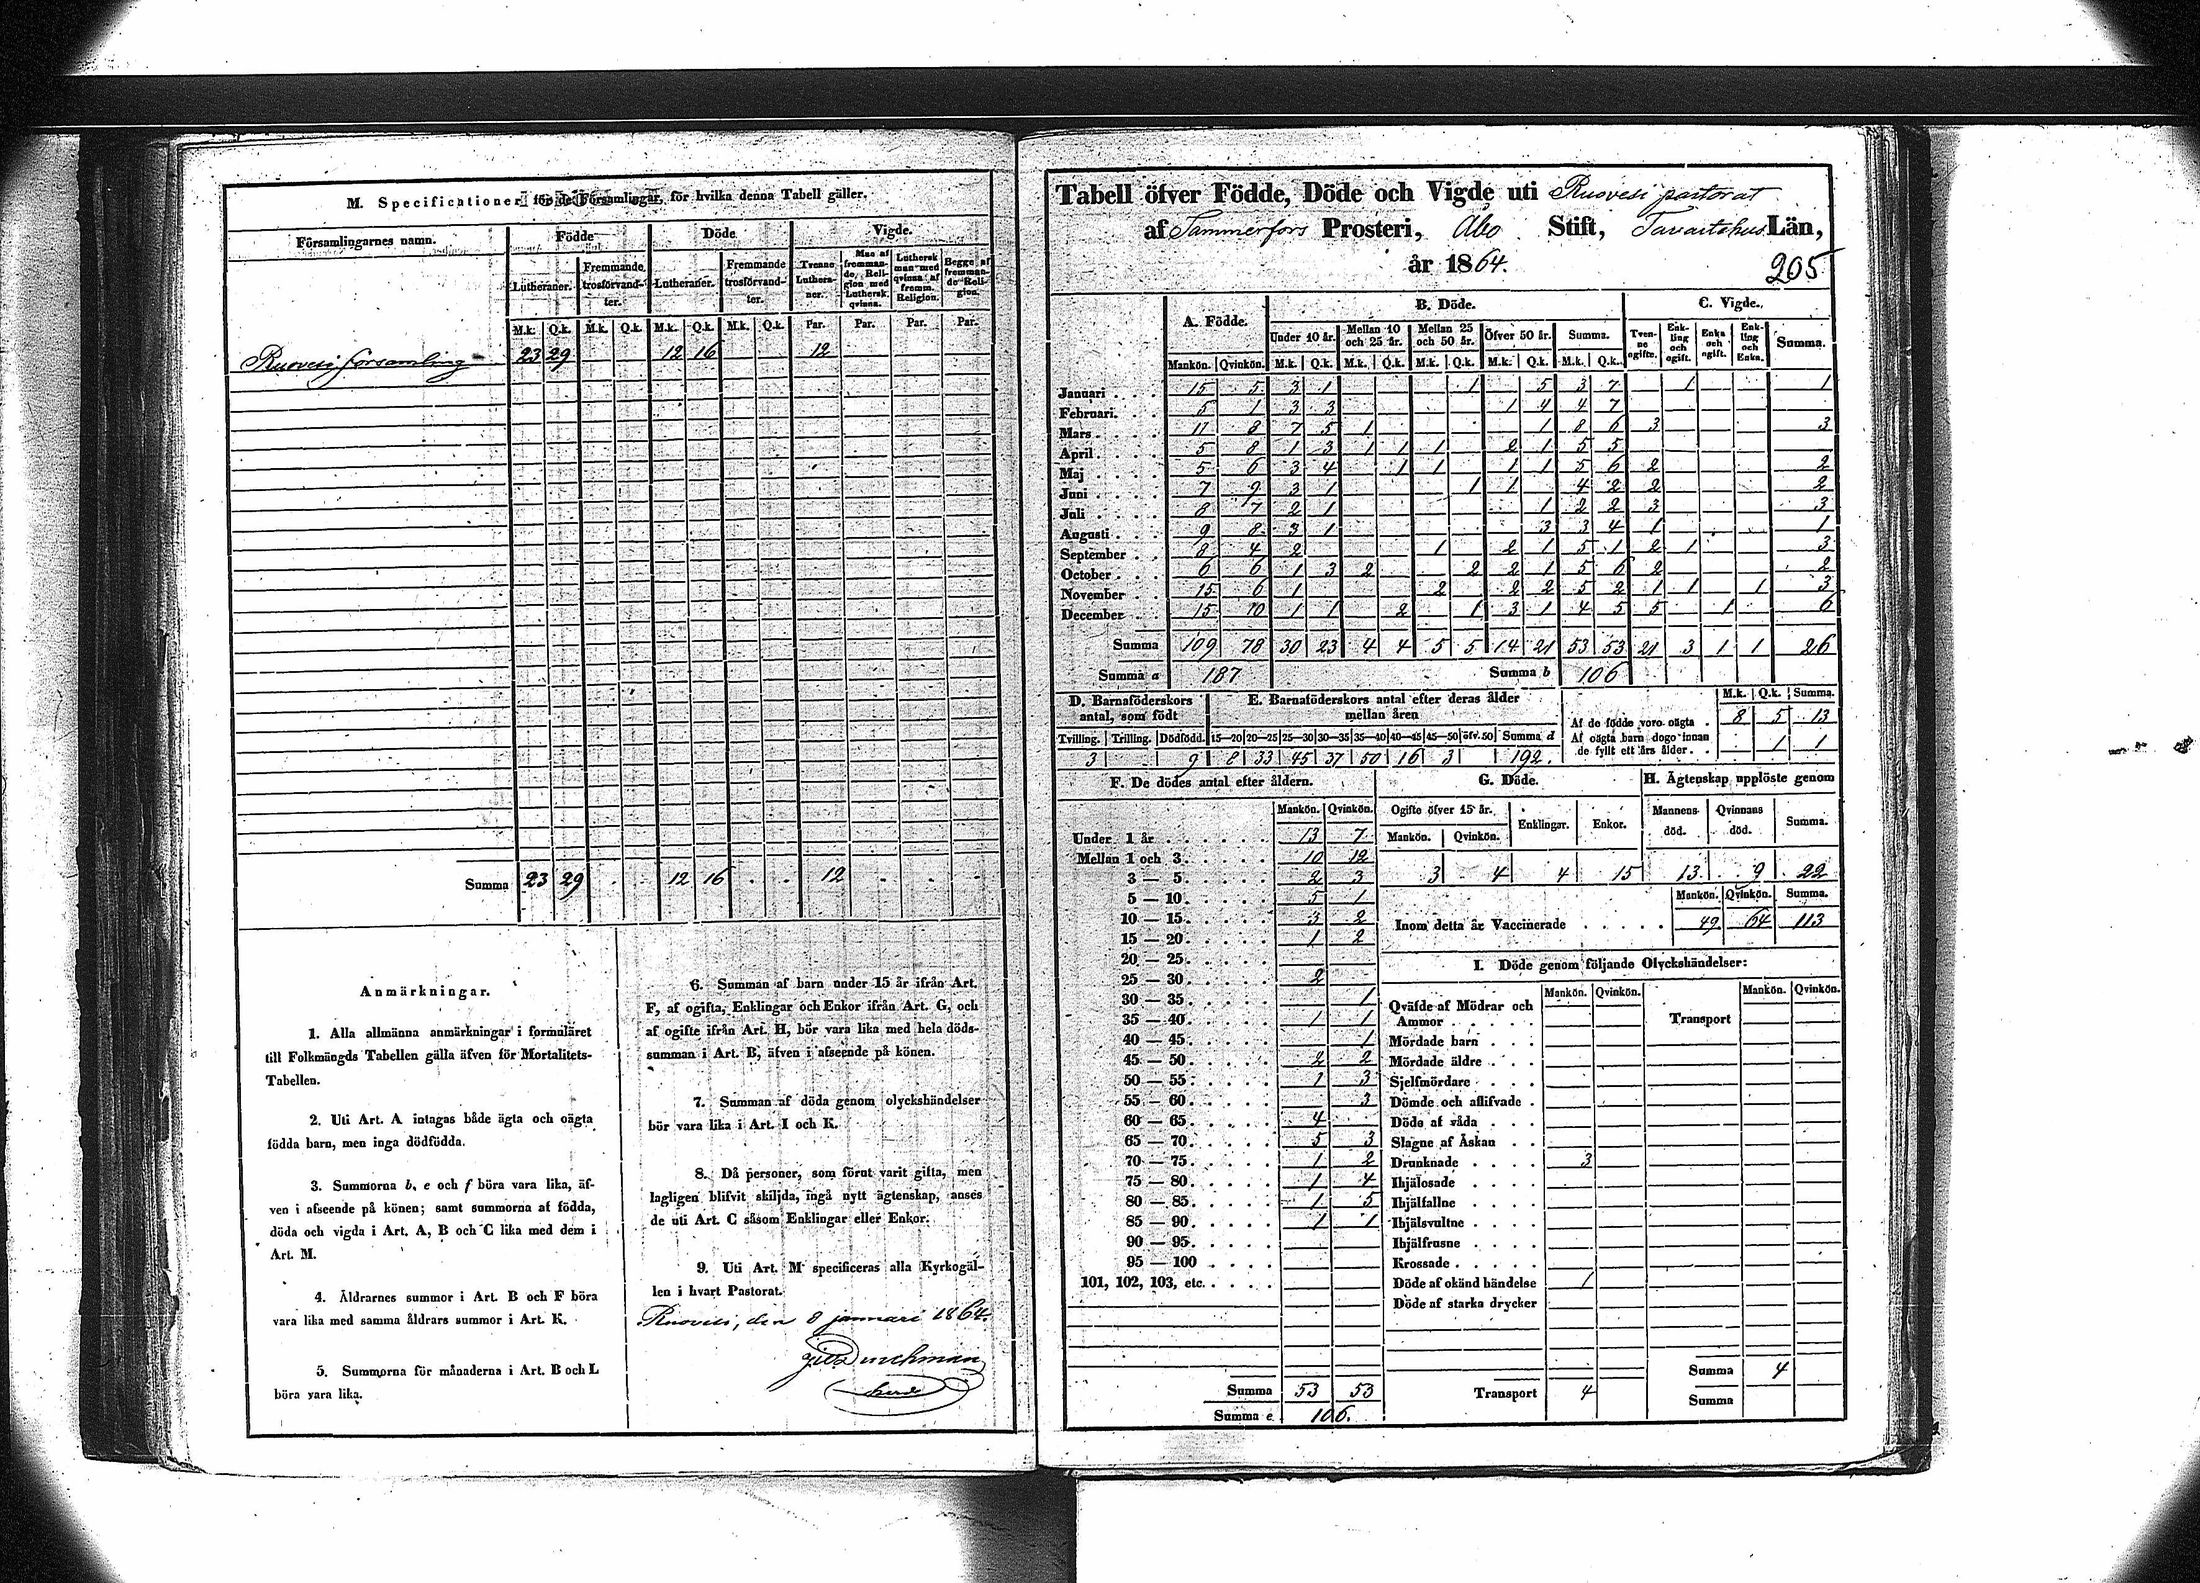 M. Specificationer för de Församlingar, för hvilka denna Tabell gäller.
Församlingarnes namn. Födde Döde Vigde.
Lutheraner. Fremmande trosförvandter. Lutheraner. Fremmande trosförvandter. Tvenne Lutheraner. Man af fremmande Religion med Luthersk qvinna. Luthersk man med qvinna af fremm. Religion. Begge af fremmande Religion.
M.k. Q.k. M.k. Q.k. M.k. Q.k. M.k. Q.k. Par. Par. Par. Par.
Ruovesi församling 23 29 12 16 12
Summa 23 29 . . 12 16 . . 12 . . .
Anmärkningar.
1. Alla allmänna anmärkningar i formuläret
till Folkmängds Tabellen gälla äfven för Mortalitets-
Tabellen.
2. Uti Art. A intagas både ägta och oägta
födda barn, men inga dödfödda.
3. Summorna b, e och f böra vara lika, äf-
ven i afseende på könen; samt summorna af födda,
döda och vigda i Art. A, B och C lika med dem i
Art. M.
4. Åldrarnes summor i Art. B och F böra
vara lika med samma åldrars summor i Art. K.
5. Summorna för månaderna i Art. B och L
böra vara lika.
6. Summan af barn under 15 år ifrån Art.
F, af ogifta, Enklingar och Enkor ifrån Art. G, och
af ogifte ifrån Art. H, bör vara lika med hela döds-
summan i Art. B, äfven i afseende på könen.
7. Summan af döda genom olyckshändelser
bör vara lika i Art. I och K.
8. Då personer, som förut varit gifta, men
lagligen blifvit skiljda, ingå nytt ägtenskap, anses
de uti Art. C såsom Enklingar eller Enkor.
9. Uti Art. M specificeras alla Kyrkogäl-
len i hvart Pastorat.
Ruovesi, den 8 januari 1864.
Tabell öfver Födde, Döde och Vigde uti Ruovesi pastorat
af Tammerfors Prosteri, Åbo Stift, Tavastehus Län,
år 1864.
205
A. Födde. B. Döde. C. Vigde.
Under 10 år. Mellan 10 och 25 år. Mellan 25 och 50 år. Öfver 50 år. Summa. Tvenne ogifte. Enkling och ogift. Enka och ogift. Enkling och Enka. Summa.
Mankön. Qvinkön. M.k. Q.k. M.k. Q.k. M.k. Q.k. M.k. Q.k. M.k. Q.k.
Januari 15 5 3 1 1 5 3 7 1 1
Februari. 5 1 3 3 1 4 4 7
Mars 11 8 7 5 1 1 8 6 3 3
April 5 8 1 3 1 1 1 2 1 5 5
Maj 5 6 3 4 1 1 1 1 5 6 2 2
Juni 7 9 3 1 1 1 4 2 2 2
Juli 8 7 2 1 1 2 2 3 3
Augusti 9 8 3 1 3 3 4 1 1
September 8 4 2 1 2 1 5 1 2 1 3
October 6 6 1 3 2 2 2 1 5 6 2 2
November 15 6 1 2 2 2 5 2 1 1 1 3
December 15 10 1 1 2 1 3 1 4 5 5 1 6
Summa 109 78 30 23 4 4 5 5 14 21 53 53 21 3 1 1 26
Summa a 187 Summa b 106
D. Barnaföderskors antal, som födt
Tvilling. Trilling. Dödfödd.
3 9
E. Barnaföderskors antal efter deras ålder mellan åren
15—20 20—25 25—30 30—35 35—40 40—45 45—50 öfv. 50 Summa d
8 33 45 37 50 16 3 192.
M.k. Q.k. Summa.
Af de födde voro oägta . 8 5 13
Af oägta barn dogo innan
de fyllt ett års ålder . . 1 1
F. De dödes antal efter åldern.
Mankön. Qvinkön.
Under 1 år 13 7
Mellan 1 och 3 10 12
3 — 5 2 3
5 — 10 5 1
10 — 15 3 2
15 — 20 1 2
20 — 25
25 — 30 2
30 — 35 1
35 — 40 1 1
40 — 45 1
45 — 50 2 2
50 — 55 1 3
55 — 60 3
60 — 65 4
65 — 70 5 3
70 — 75 1 2
75 — 80 1 4
80 — 85 1 5
85 — 90 1 1
90 — 95
95 — 100
101, 102, 103, etc.
Summa 53 53
Summa e 106.
G. Döde.
Ogifte öfver 15 år. Enklingar. Enkor.
Mankön. Qvinkön.
3 4 4 15
H. Ägtenskap upplöste genom
Mannens död. Qvinnans död. Summa.
13 9 22
Mankön. Qvinkön. Summa.
Inom detta år Vaccinerade 49 64 113
I. Döde genom följande Olyckshändelser:
Mankön. Qvinkön. Mankön. Qvinkön.
Qväfde af Mödrar och
Ammor
Transport
Mördade barn
Mördade äldre
Sjelfmördare
Dömde och aflifvade
Döde af våda
Slagne af Åskan
Drunknade 3
Ihjälosade
Ihjälfallne
Ihjälsvultne
Ihjälfrusne
Krossade
Döde af okänd händelse 1
Döde af starka drycker
Summa 4
Transport 4
Summa